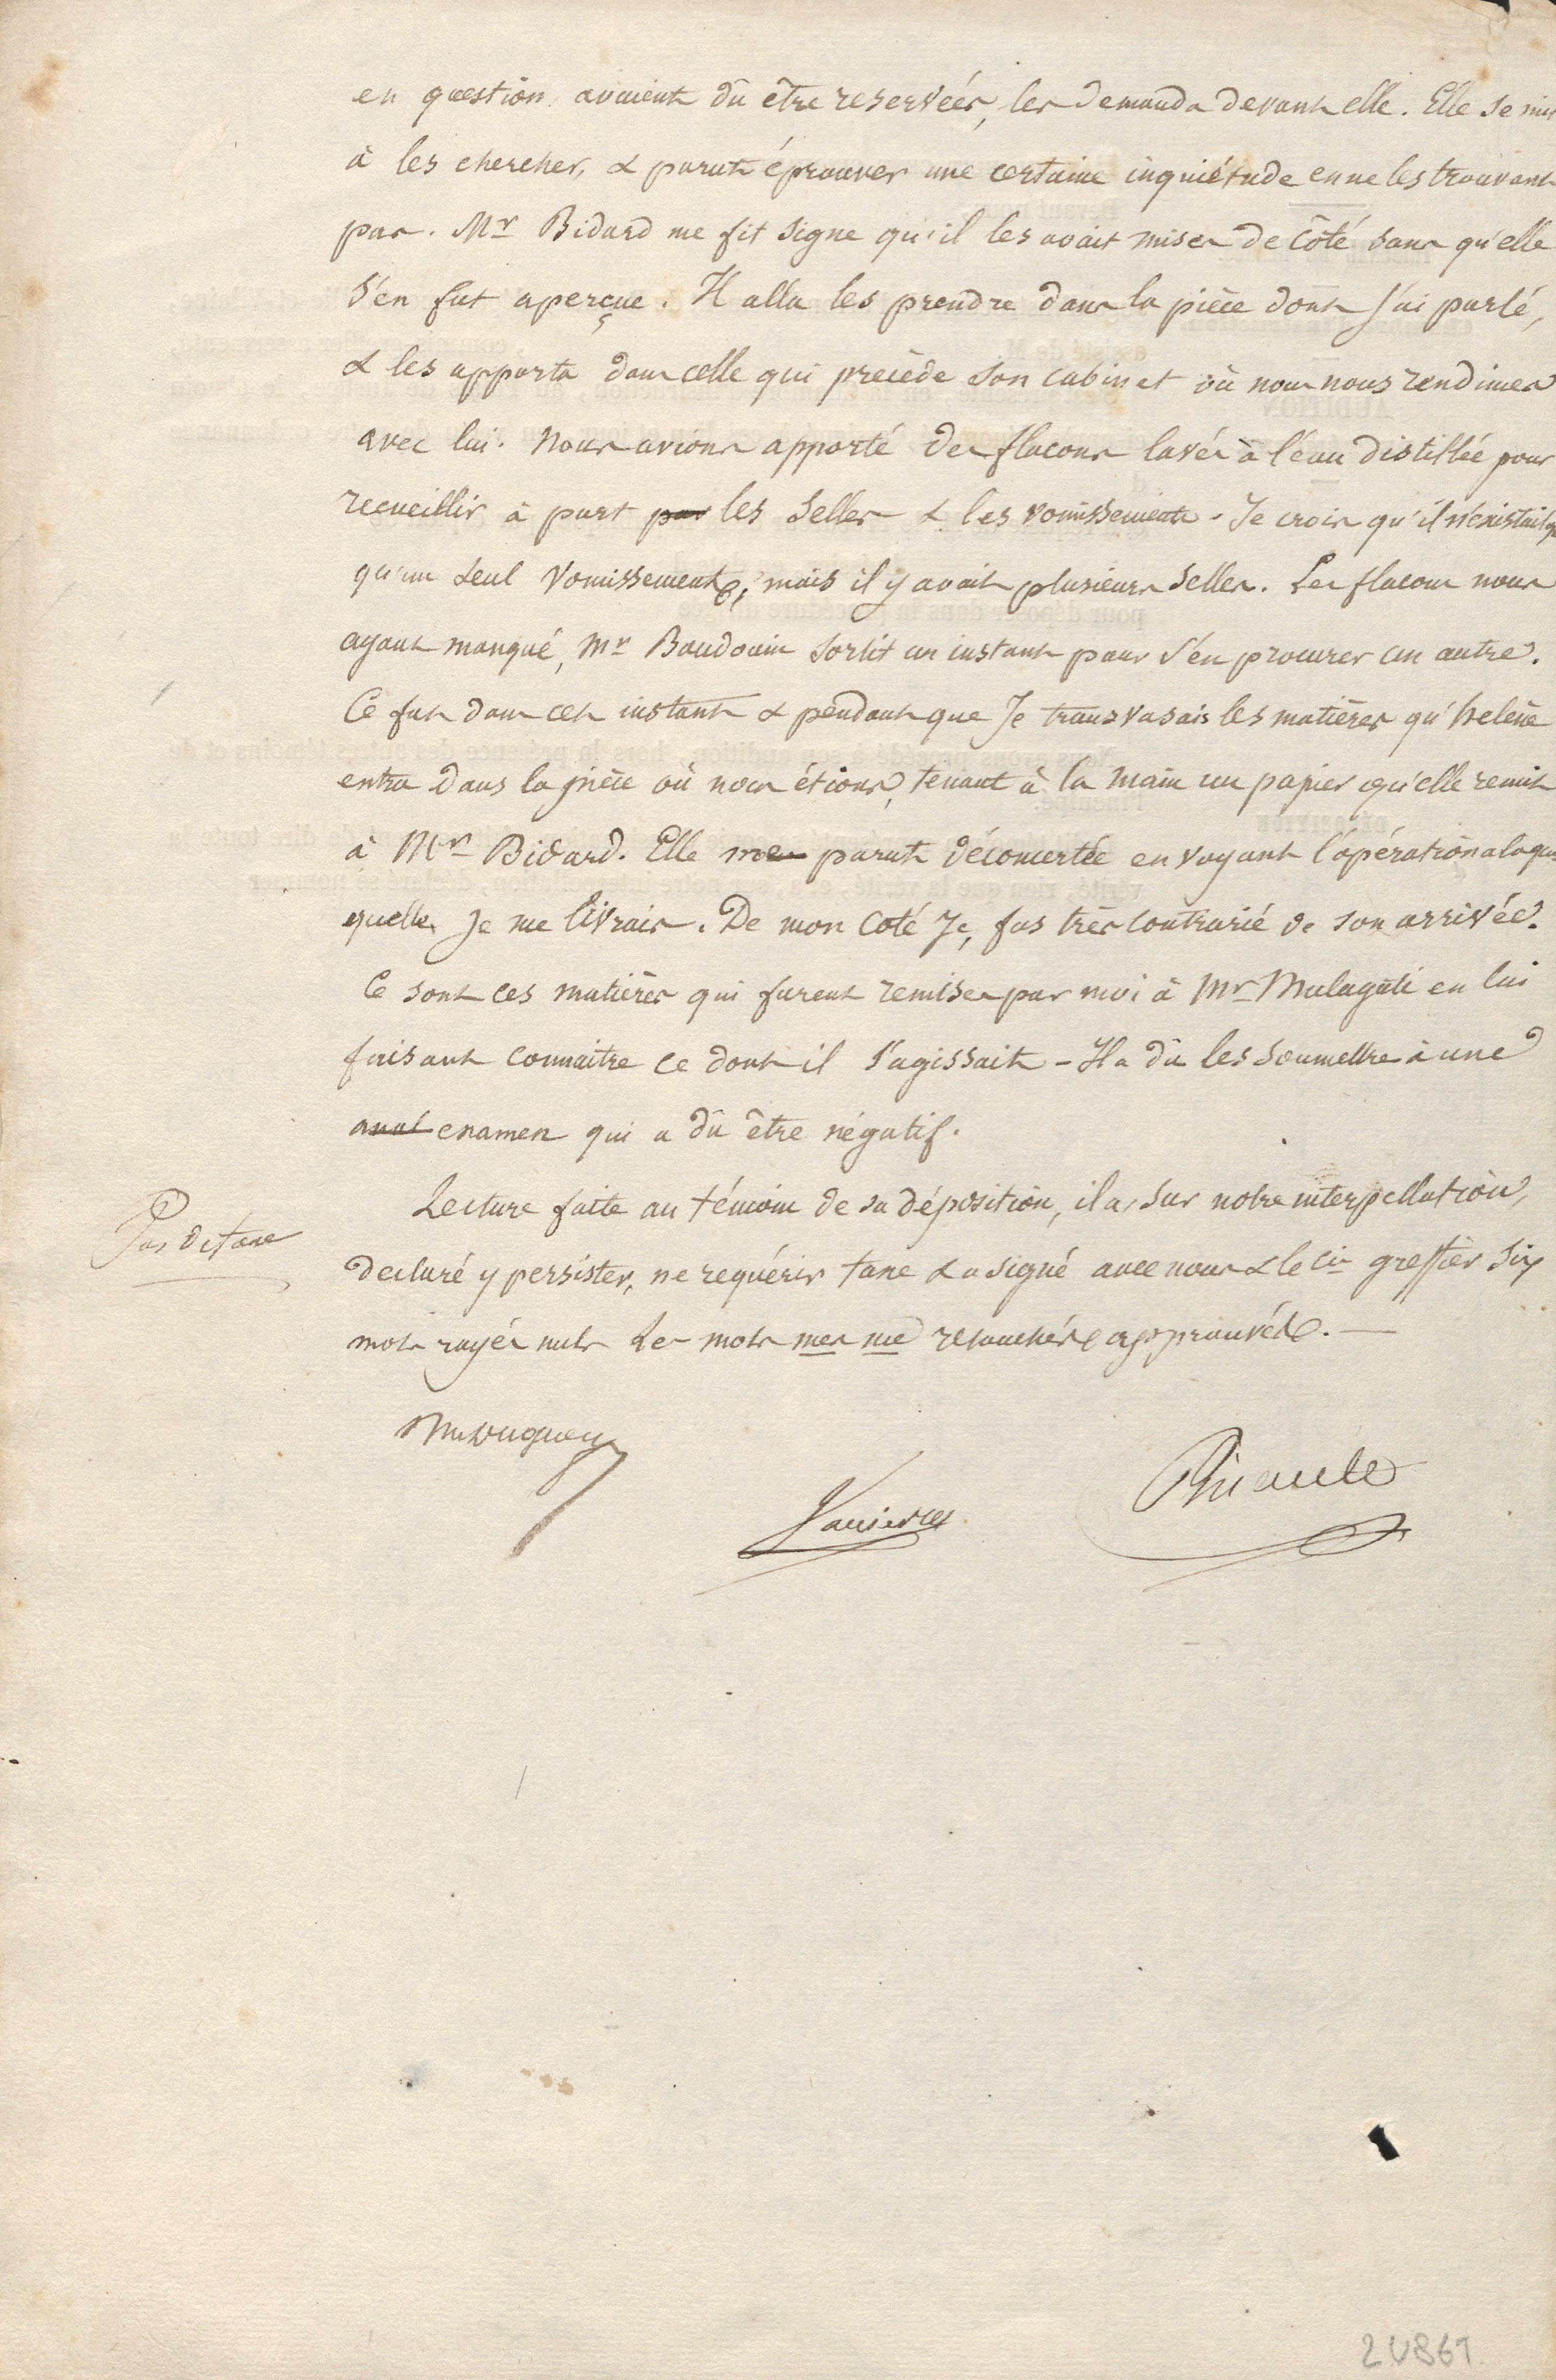 en question avaient dû être reservées, les demanda devant elle. Elle se mit
à les chercher, & parut éprouver une certaine inquiétude en ne les trouvant
pas. Mr Bidard me fit signe qu'il les avait mises de côté sans qu'elle
s'en fut aperçue. Il alla les prendre dans la pièce dont j'ai parlé,
& les apporta dans celle qui précède son cabinet où nous nous rendimes
avec lui. Nous avions apporté des flacons lavés à l'eau distillée pour
recueillir à part par les selles & les vomissements. Je crois qu'il n'existait
qu'un seul vomissement, mais il y avait plusieurs selles. Les flacons nous
ayant manqué, Mr Baudouin sortit un instant pour s'en procurer un autre.
Ce fut dans cet instant & pendant que Je transvasais les matières qu'helène
entra dans la pièce où nous étions, tenant à la main un papier qu'elle remit
à Mr Bidard. Elle me parut décomcertée en voyant l'opération a laque
quelle Je me livrais. De mon coté Je, fus très contrarié de son arrivée.
Ce sont ces matières qui furent remises par moi à Mr Malagati en lui
faisant connaitre ce dont il s'agissait - Il a dû les soumettre à une
anal examen qui a dû être négatif.
Lecture faite au témoin de sa déposition, il a, sur notre interpellation,
Pas de taxe
declaré y persister, ne requérir taxe & a signé avec nous & le cis greffier Six
mots rayés nuls Les mots mes me retouchés approuvés. —
20867